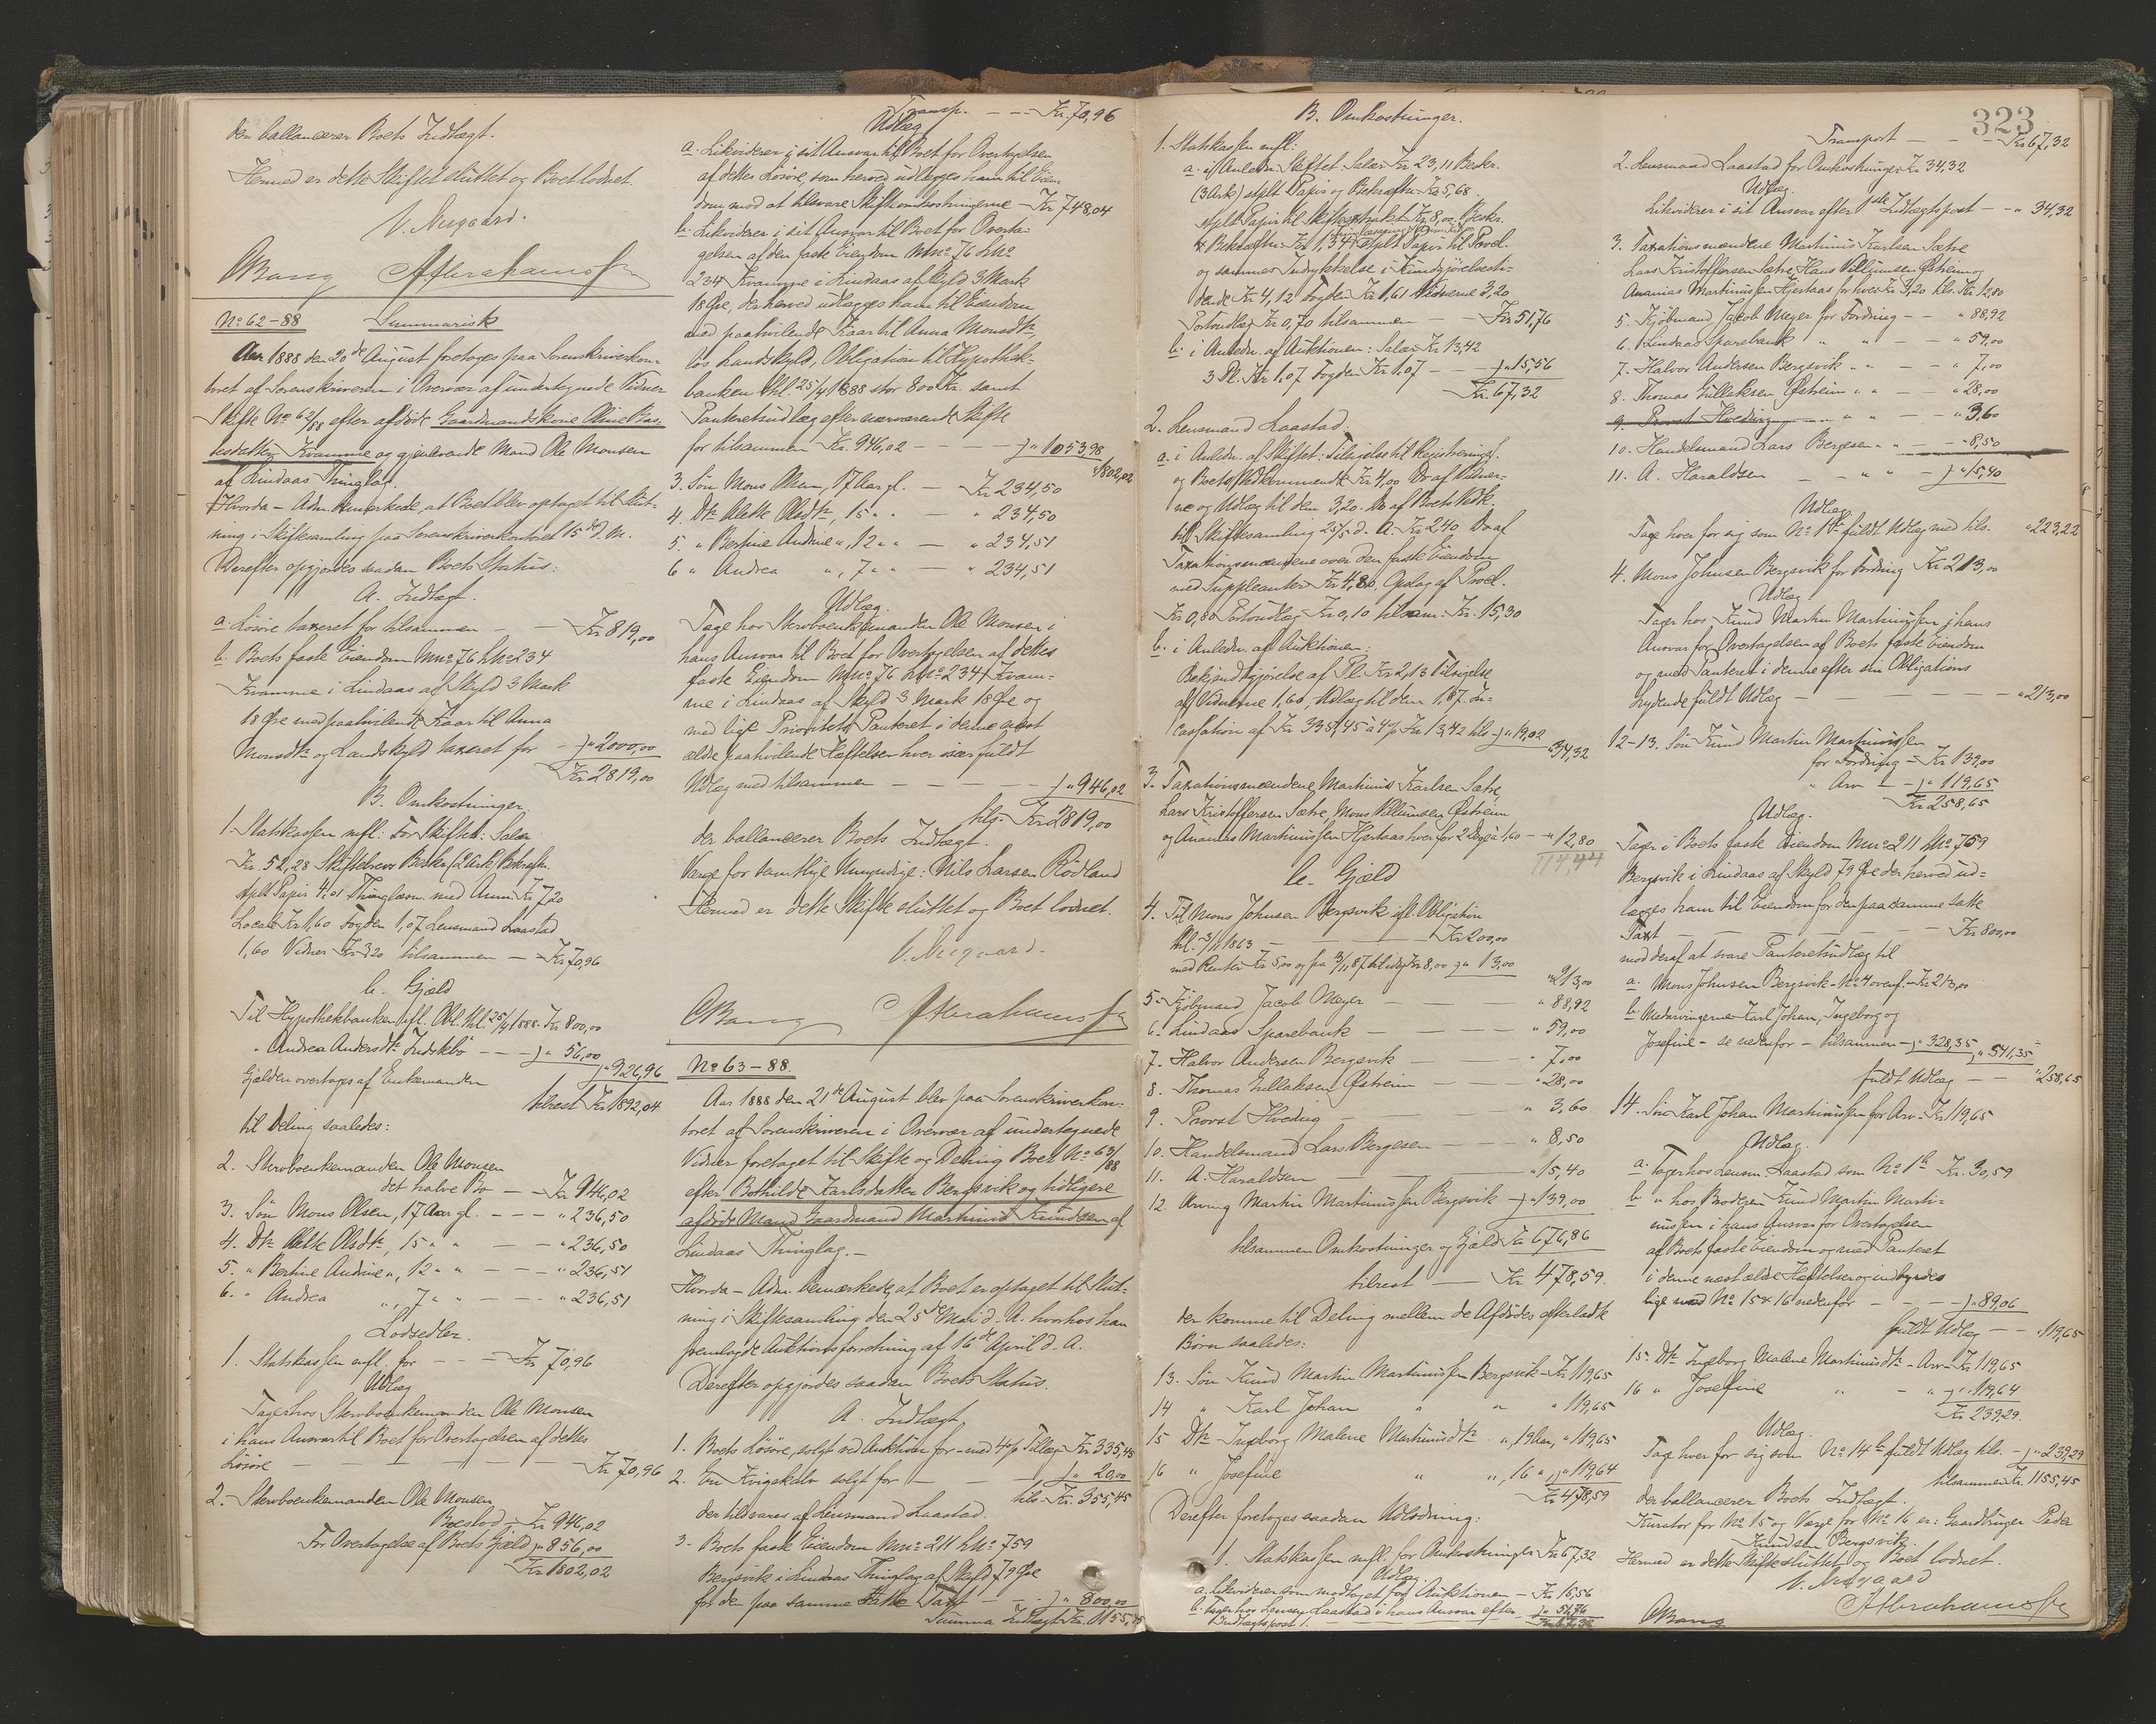 den ballancerer Boets Indtægt.
Hermed er dette Skiftet sluttet og Boet loddet.
V. Neegaard.
OBang AAbrahamsen
No 62-88 Summarisk
Aar 1888 den 20de August foretoges paa Sorenskriverkon-
toret af Sorenskriveren i Overvær af undertegnede Vidner
Skifte No 62/88 efter afdøde Gaardmandskone Oline Bas-
tesdatter Kvamme og gjenlevende Mand Ole Monsen
af Lindaas Thinglag.
Hvorda - Adm. bemærkede, at Boet blev optaget til Slut-
ning i Skiftesamling paa Sorenskriverkontoret 15de d. M.
Derefter opgjordes saadan Boets Status:
A. Indtægt.
a. Løsøre taxeret for tilsammen - - Kr 819,00
b. Boets faste Eiendom Mno 76 Lno 234
Kvamme i Lindaas af Skyld 3 Mark
18 Øre med paahvilende Kaar til Anna
Monsdtr og Landskyld taxeret for - " 2000,00
Kr 2819,00
B. Omkostninger.
1. Statskassen mfl: For Skiftet: Salær
Kr. 52,28 Skiftebrev Beskr (2 Ark) Bekræftn.
stplt Papir 4,01 Thinglæsn. med Anm. Kr 7,20
Locale Kr 1,60 Fogden 1,07 Lensmand Laastad
1,60 Vidner Kr 3,20 tilsammen - Kr 70,96
b. Gjæld
Til Hypothekbanken ifl. Obl. thl. 25/4 1888. Kr 800,00
" Andrea Andersdtr Indskebø - - " 56,00
" 926,96
Gjælden overtages af Enkemanden
tilrest Kr 1892,04
til Deling saaledes:
2. Skrvboenkemanden Ole Monsen
det halve Bo - Kr 946,02
3. Søn Mons Olsen, 17 Aar gl. - - - " 236,50
4. Dtr Alette Olsdtr, 15 " " - - " 236,50
5. " Bertine Andrine ", 12 " " - - - " 236,51
6. " Andrea ", 7 " " - - - " 236,51
Lodsedler.
1. Statskassen mfl. for - - - Kr 70,96
Udlæg
Tager hos Skrvboenkemanden Ole Monsen
i hans Ansvar til Boet for Overtagelsen af dettes
Løsøre - - - Kr 70,96
2. Skrvboenkemanden Ole Monsen
Boeslod - Kr 946,02
For Overtagelse af Boets Gjæld " 856,00
Kr 1802,02
Transp. - - - Kr. 70,96
Udlæg
a. Likviderer i sit Ansvar til Boet for Overtagelsen
af dettes Løsøre, som herved udlægges ham til Eien-
dom mod at tilsvare Skifteomkostningerne - Kr 748,04
b. Likviderer i sit Ansvar til Boet for Overta-
gelsen af den faste Eiendom Mno 76 Lno
234 Kvamme i Lindaas af Skyld 3 Mark
18 Øre, der herved udlægges ham til Eiendom
med paahvilende Kaar til Anna Monsdtr,
løs Landskyld, Obligation til Hypothek-
banken thl. 25/4 1888 stor 800 Kr. samt
Panteretsudlæg efter nærværende Skifte
for tilsammen Kr. 946,02 - - - " 1053,98
" 1802,02
3. Søn Mons Olsen, 17 Aar gl. - Kr 234,50
4. Dtr Alette Olsdtr, 15 " " - " 234,50
5. " Bertine Andrine ", 12 " " - " 234,51
6 " Andrea ", 7 " " - " 234,51
Udlæg.
Tage hos Skrvboenkemanden Ole Monsen i
hans Ansvar til Boet for Overtagelsen af dettes
faste Eiendom Mno 76 Lno 234 Kvam-
me i Lindaas af Skyld 3 Mark 18 Øre og
med lige Prioritets Panteret i denne næst
ældre paahvilende Hæftelser hver især fuldt
Udlæg med tilsammen - - - " 946,02
tilsg - Kr 2819,00
der ballancerer Boets Indtægt.
Værge for samtlige Umyndige: Nils Larsen Rødland
Hermed er dette Skifte sluttet og Boet loddet.
V. Neegaard.
OBang AAbrahamsen
No 63-88.
Aar 1888 den 21de August blev paa Sorenskriverkon-
toret af Sorenskriveren i Overvær af undertegnede
Vidner foretaget til Skifte og Deling Boet No 63/88
efter Bothilde Karlsdatter Bergsvik og tidligere
afdøde Mand Gaardmand Martinus Knudsen af
Lindaas Thinglag. -
Hvorda - Adm. bemærkede, at Boet er optaget til Slut-
ning i Skiftesamling den 25de Mai d. A. hvorhos han
fremlagde Auktionsforretning af 16de April d. A.
Derefter opgjordes saadan Boets Status.
A. Indtægt.
1. Boets Løsøre, solgt ved Auktion for - med 4 % Tillæg - Kr. 335,45
2. En Kvigekalv solgt for - - - " 20,00
tils. Kr. 355,45
der tilsvares af Lensmand Laastad.
3. Boets faste Eiendom Mno 211 Lno 759
Bergsvik i Lindaas Thinglag af Skyld 79 Øre
for den paa samme satte Taxt - - - " 800,00
Summa Indtægt Kr. 1155,45
B. Omkostninger.
1. Statskassen mfl:
a. i Anledn. Skiftet: Salær Kr 23,11 Beskr.
(3 Ark) stplt Papir og Bekræftn. Kr 5,68.
stplt Papir til Skifteextrakt Kr 8,00 Beskr.
& Bekræftn. Kr 1,34, stplt Papir til Procl.
og sammes Indrykkelse i Kundgjørelsesti-
dende Kr 4,12 Fogden Kr 1,61 Vidnerne 3,20
Portoudlæg Kr 0,70 tilsammen - - Kr 51,76
b. i Anledn. af Auktionen: Salær Kr 13,42
3 Pl. Kr 1,07 Fogden Kr 1.07 - - - " 15,56
Kr. 67,32
2. Lensmand Laastad.
a. i Anledn. af Skiftet: Tilsigelse til Registreringsf.
og Boets Vedkommende Kr 4,00 Do af Vidner-
ne og Udlæg til dem 3,20. Do af Boets Vedk.
til Skiftesamling 25/5 d. A. Kr 2,40 Do af
Taxationsmændene over den faste Eiendom
med Suppleanter Kr 4,80, Opslag af Procl.
Kr 0,80 Portoudlæg Kr 0,10 tilsam: Kr. 15,30
b. i Anledn. af Auktionen:
Bekjendtgjørelse af Pl. Kr 2,13 Tilsigelse
af Vidnerne 1,60, Udlæg til dem 1,87. In-
cassation af Kr 335,45 a 4 % Kr 13,42 tils - " 19,02
" 34,32
3. Taxationsmændene Martinus Karlsen Sætre,
Lars Kristoffersen Sætre, Mons Villumsen Østreim
og Ananias Martinussen Hjertaas hver for 2 Dage à 1,60 - " 12,80
114,44
b. Gjæld
4. Til Mons Johnsen Bergsvik ifl. Obligation
thl. 3/11 1863 - - - Kr 200,00
med Renter Kr 5,00 og fra 3/11 87 til idag Kr 8,00 " 13,00
" 213,00
5. Kjøbmand Jacob Meyer - - - " 88,92
6. Lindaas Sparebank - - - " 59,00
7. Halvor Andersen Bergsvik - - - " 7,00
8. Thomas Gullaksen Østreim - - - " 28,00
9. Provst Hveding - - - " 3,60
10. Handelsmand Lars Bergesen - - - " 8,50
11. A. Haraldsen - - - " 15,40
12. Arving Martin Martinussen Bergsvik - " 139,00
tilsammen Omkostninger og Gjæld Kr 676,86
tilrest - Kr 478,59.
der komme til Deling mellem de Afdødes efterladte
Børn saaledes:
13. Søn Knud Martin Martinussen Bergsvik - Kr 119,65
14 " Karl Johan " " " 119,65
15 Dtr Ingeborg Malene Martinusdtr ", 19 Aar, " 119,65
16 " Josefine " ", 16 ", " 119,64
Kr 478,59
Derefter foretoges saadan Udlodning:
1. Statskassen mfl. for Omkostninger Kr 67,32
Udlæg.
a. Likviderer som modtaget for Auktionen - Kr 15,56
b. Tager hos Lensm. Laastad i hans Ansvar efter " 51,76
Indtægtspost 1. - - - Kr 67,32
323
Transport - - - Kr 67,32
2. Lensmand Laastad for Omkostninger Kr 34,32
Udlæg.
Likviderer i sit Ansvar efter 1ste Indtægtspost - - " 34,32
3. Taxationsmændene Martinus Karlsen Sætre
Lars Kristoffersen Sætre, Hans Villumsen Østreim og
Ananias Martinussen Hjertaas for hver Kr 3,20 tils. Kr. 12,80
5. Kjøbmand Jacob Meyer for Fordring - - " 88,92
6. Lindaas Sparebank " " - - " 59,00
7. Halvor Andersen Bergsvik " " - - " 7,00
8. Thomas Gullaksen Østreim " " - - " 28,00
9. Provst Hveding " " - - " 3,60
10. Handelsmand Lars Bergesen " " - - " 8,50
11. A. Haraldsen - - " " - " 15,40
Udlæg
Tage hver for sig som No 1b fuldt Udlæg med tils. " 223,22
4. Mons Johnsen Bergsvik for Fordring Kr 213,00
Udlæg
Tager hos Knud Martin Martinussen i hans
Ansvar for Overtagelsen af Boets faste Eiendom
og med Panteret i denne efter sin Obligations
Lydende fuldt Udlæg - - - " 213,00
12-13. Søn Knud Martin Martinussen
for Fordring - Kr 139,00
" Arv - - " 119,65
Kr 258,65
Udlæg.
Tager i Boets faste Eiendom Mno 211 Lno 759
Bergsvik i Lindaas af Skyld 79 Øre der herved ud-
lægges ham til Eiendom for den paa samme satte
Taxt - - - Kr 800,00
mod deraf at svare Panteretsudlæg til
a. Mons Johnsen Bergsvik - No 4 ovenf. - Kr 213,00
b. Medarvingerne Karl Johan, Ingeborg og
Josefine - se nedenfor - tilsammen - " 328,35
" 541,35
fuldt Udlæg - - " 258,65
14. Søn Karl Johan Martinussen for Arv - Kr 119,65
Udlæg.
a. Tager hos Lensm. Laastad som No 1b Kr. 30,59
b. " hos Broderen Knud Martin Marti-
nussen i hans Ansvar for Overtagelsen
af Boets faste Eiendom og med Panteret
i denne næst ældre Hæftelser og indbyrdes
lige med No 15 & 16 nedenfor - - - " 89,06
fuldt Udlæg - - " 119,65
15. Dtr Ingeborg Malene Martinusdtr - Arv - Kr 119,65
16 " Josefine " - " " 119,64
Kr 239,29.
Udlæg.
Tage hver for sig som No 14b fuldt Udlæg tils. - " 239,29
tilsammen Kr. 1155,45
der ballancerer Boets Indtægt.
Kurator for No 15 og Værge for No 16 er: Gaardbruger Peder
Knudsen Bergsvik.
Hermed er dette Skifte sluttet og Boet loddet.
V. Neegaard
OBang AAbrahamsen